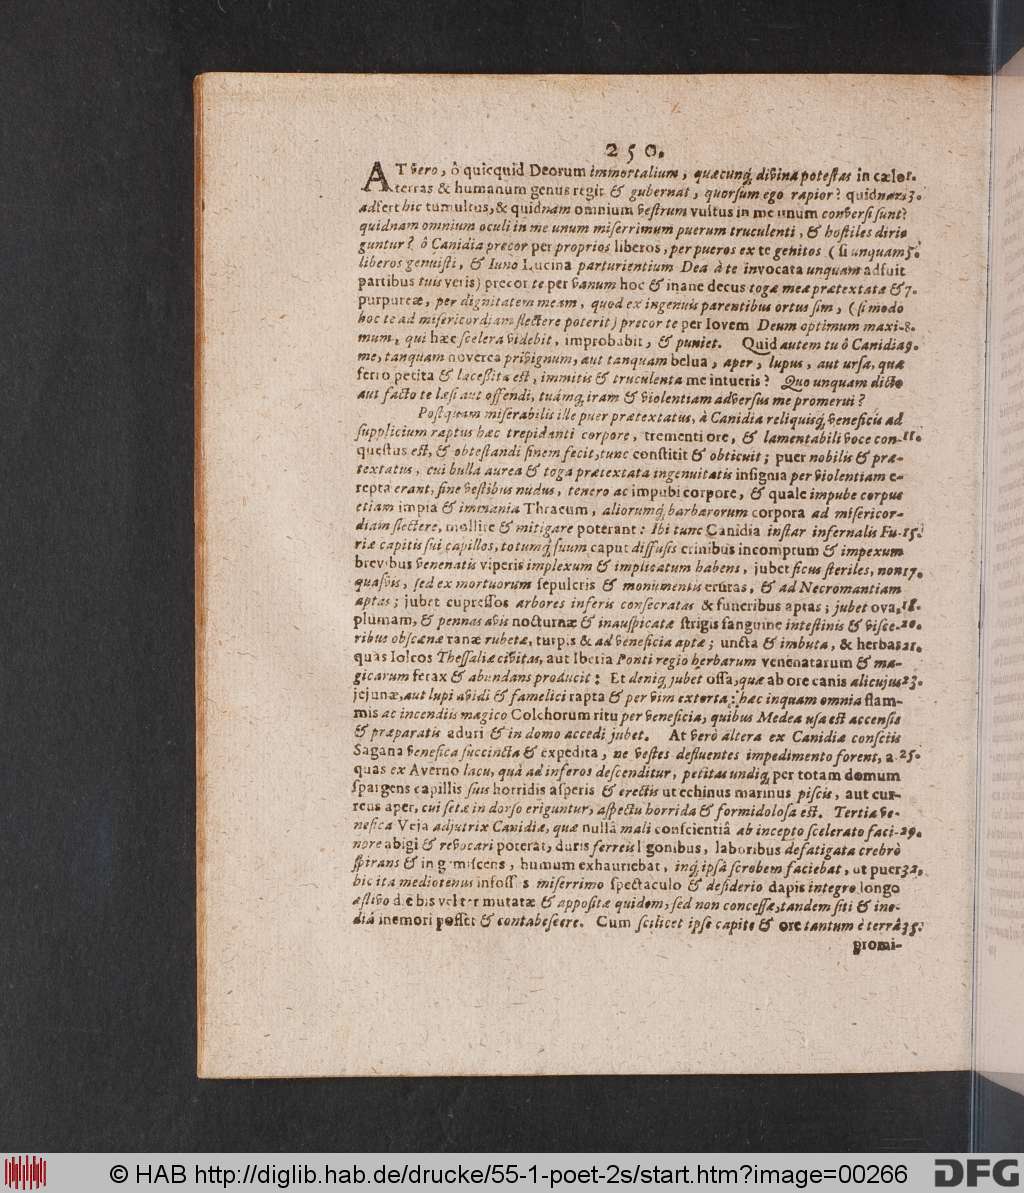 250.
AT vero, ô quicquid Deorum immortalium, quæcunq́; divina potestas in cælo 1.
terras & humanum genus regit & gubernat, quorsum ego rapior? quidnam 3.
adfert hic tumultus, & quidnam omnium vestrum vultus in me unum conversi sunt?
quidnam omnium oculi in me unum miserrimum puerum truculenti, & hostiles diri-
guntur? ô Canidia precor per proprios liberos, per pueros ex te genitos (si unquam 5.
liberos genuisti, & Iuno Lucina parturientium Dea à te invocata unquam adfuit
partibus tuis veris) precor te per vanum hoc & inane decus togæ meæ prætextatæ & 7.
purpureæ, per dignitatem meam, quod ex ingenuis parentibus ortus sim, (si modo
hoc te ad misericordiam flectere poterit) precor te per Iovem Deum optimum maxi- 8.
mum, qui hæc scelera videbit, improbabit, & puniet. Quid autem tu ô Canidia 9.
me, tanquam noverca privignum, aut tanquam belua, aper, lupus, aut ursa, quæ
ferro petita & lacessita est, immitis & truculenta me intueris? Quo unquam dicto
aut facto te læsi aut offendi, tuámq; iram & violentiam adversus me promerui?
Postquam miserabilis ille puer prætextatus, à Canidia reliquisq́; veneficis ad
supplicium raptus hæc trepidanti corpore, trementi ore, & lamentabili voce con- 11.
questus est, & obtestandi finem fecit, tunc constitit & obticuit; puer nobilis & præ-
textatus, cui bulla aurea & toga prætextata ingenuitatis insignia per violentiam e-
repta erant, sine vestibus nudus, tenero ac impubi corpore, & quale impube corpus
etiam impia & immania Thracum, aliorumq́; barbarorum corpora ad misericor-
diam flectere, mollire & mitigare poterant: Ibi tunc Canidia instar infernalis Fu- 15.
riæ capitis sui capillos, totumq́; suum caput diffusis crinibus incomptum & impexum
brevibus venenatis viperis implexum & implicatum habens, jubet ficus steriles, non 17.
quasvis, sed ex mortuorum sepulcris & monumentis erutas, & ad Necromantiam
aptas; jubet cupressos arbores inferis consecratas & funeribus aptas; jubet ova, 18.
plumam, & pennas avis nocturnæ & inauspicatæ strigis sanguine intestinis & visce- 20.
ribus obscænæ ranæ rubetæ, turpis & ad veneficia aptæ; uncta & imbuta, & herbas 21.
quas Iolcos Thessaliæ civitas, aut Iberia Ponti regio herbarum venenatarum & ma-
gicarum ferax & abundans producit: Et deniq; jubet ossa, quæ ab ore canis alicujus 23.
jejunæ, aut lupi avidi & famelici rapta & per vim extorta; hæc inquam omnia flam-
mis ac incendiis magico Colchorum ritu per veneficia, quibus Medea usa est accensis
& præparatis aduri & in domo accedi jubet. At verò altera ex Canidiæ consciis
Sagana venefica succincta & expedita, ne vestes defluentes impedimento forent, a- 25.
quas ex Averno lacu, quà ad inferos descenditur, petitas undiq; per totam domum
spargens capillis suis horridis asperis & erectis ut echinus marinus piscis, aut cur-
rens aper, cui setæ in dorso eriguntur, aspectu horrida & formidolosa est. Tertia ve-
nefica Veja adjutrix Canidiæ, quæ nullâ mali conscientiâ ab incepto scelerato faci- 29.
nore abigi & revocari poterat, duris ferreis ligonibus, laboribus defatigata crebrò
spirans & ingemiscens, humum exhauriebat, inq́; ipsâ scrobem faciebat, ut puer 32.
hic ita mediotenus infossus miserrimo spectaculo & desiderio dapis integro longo
æstivo die bis velter mutatæ & appositæ quidem, sed non concessæ, tandem siti & ine-
diâ inemori posset & contabescere. Cum scilicet ipse capite & ore tantum è terrâ 35.
promi-
© HAB http://diglib.hab.de/drucke/55-1-poet-2s/start.htm?image=00266
DFG